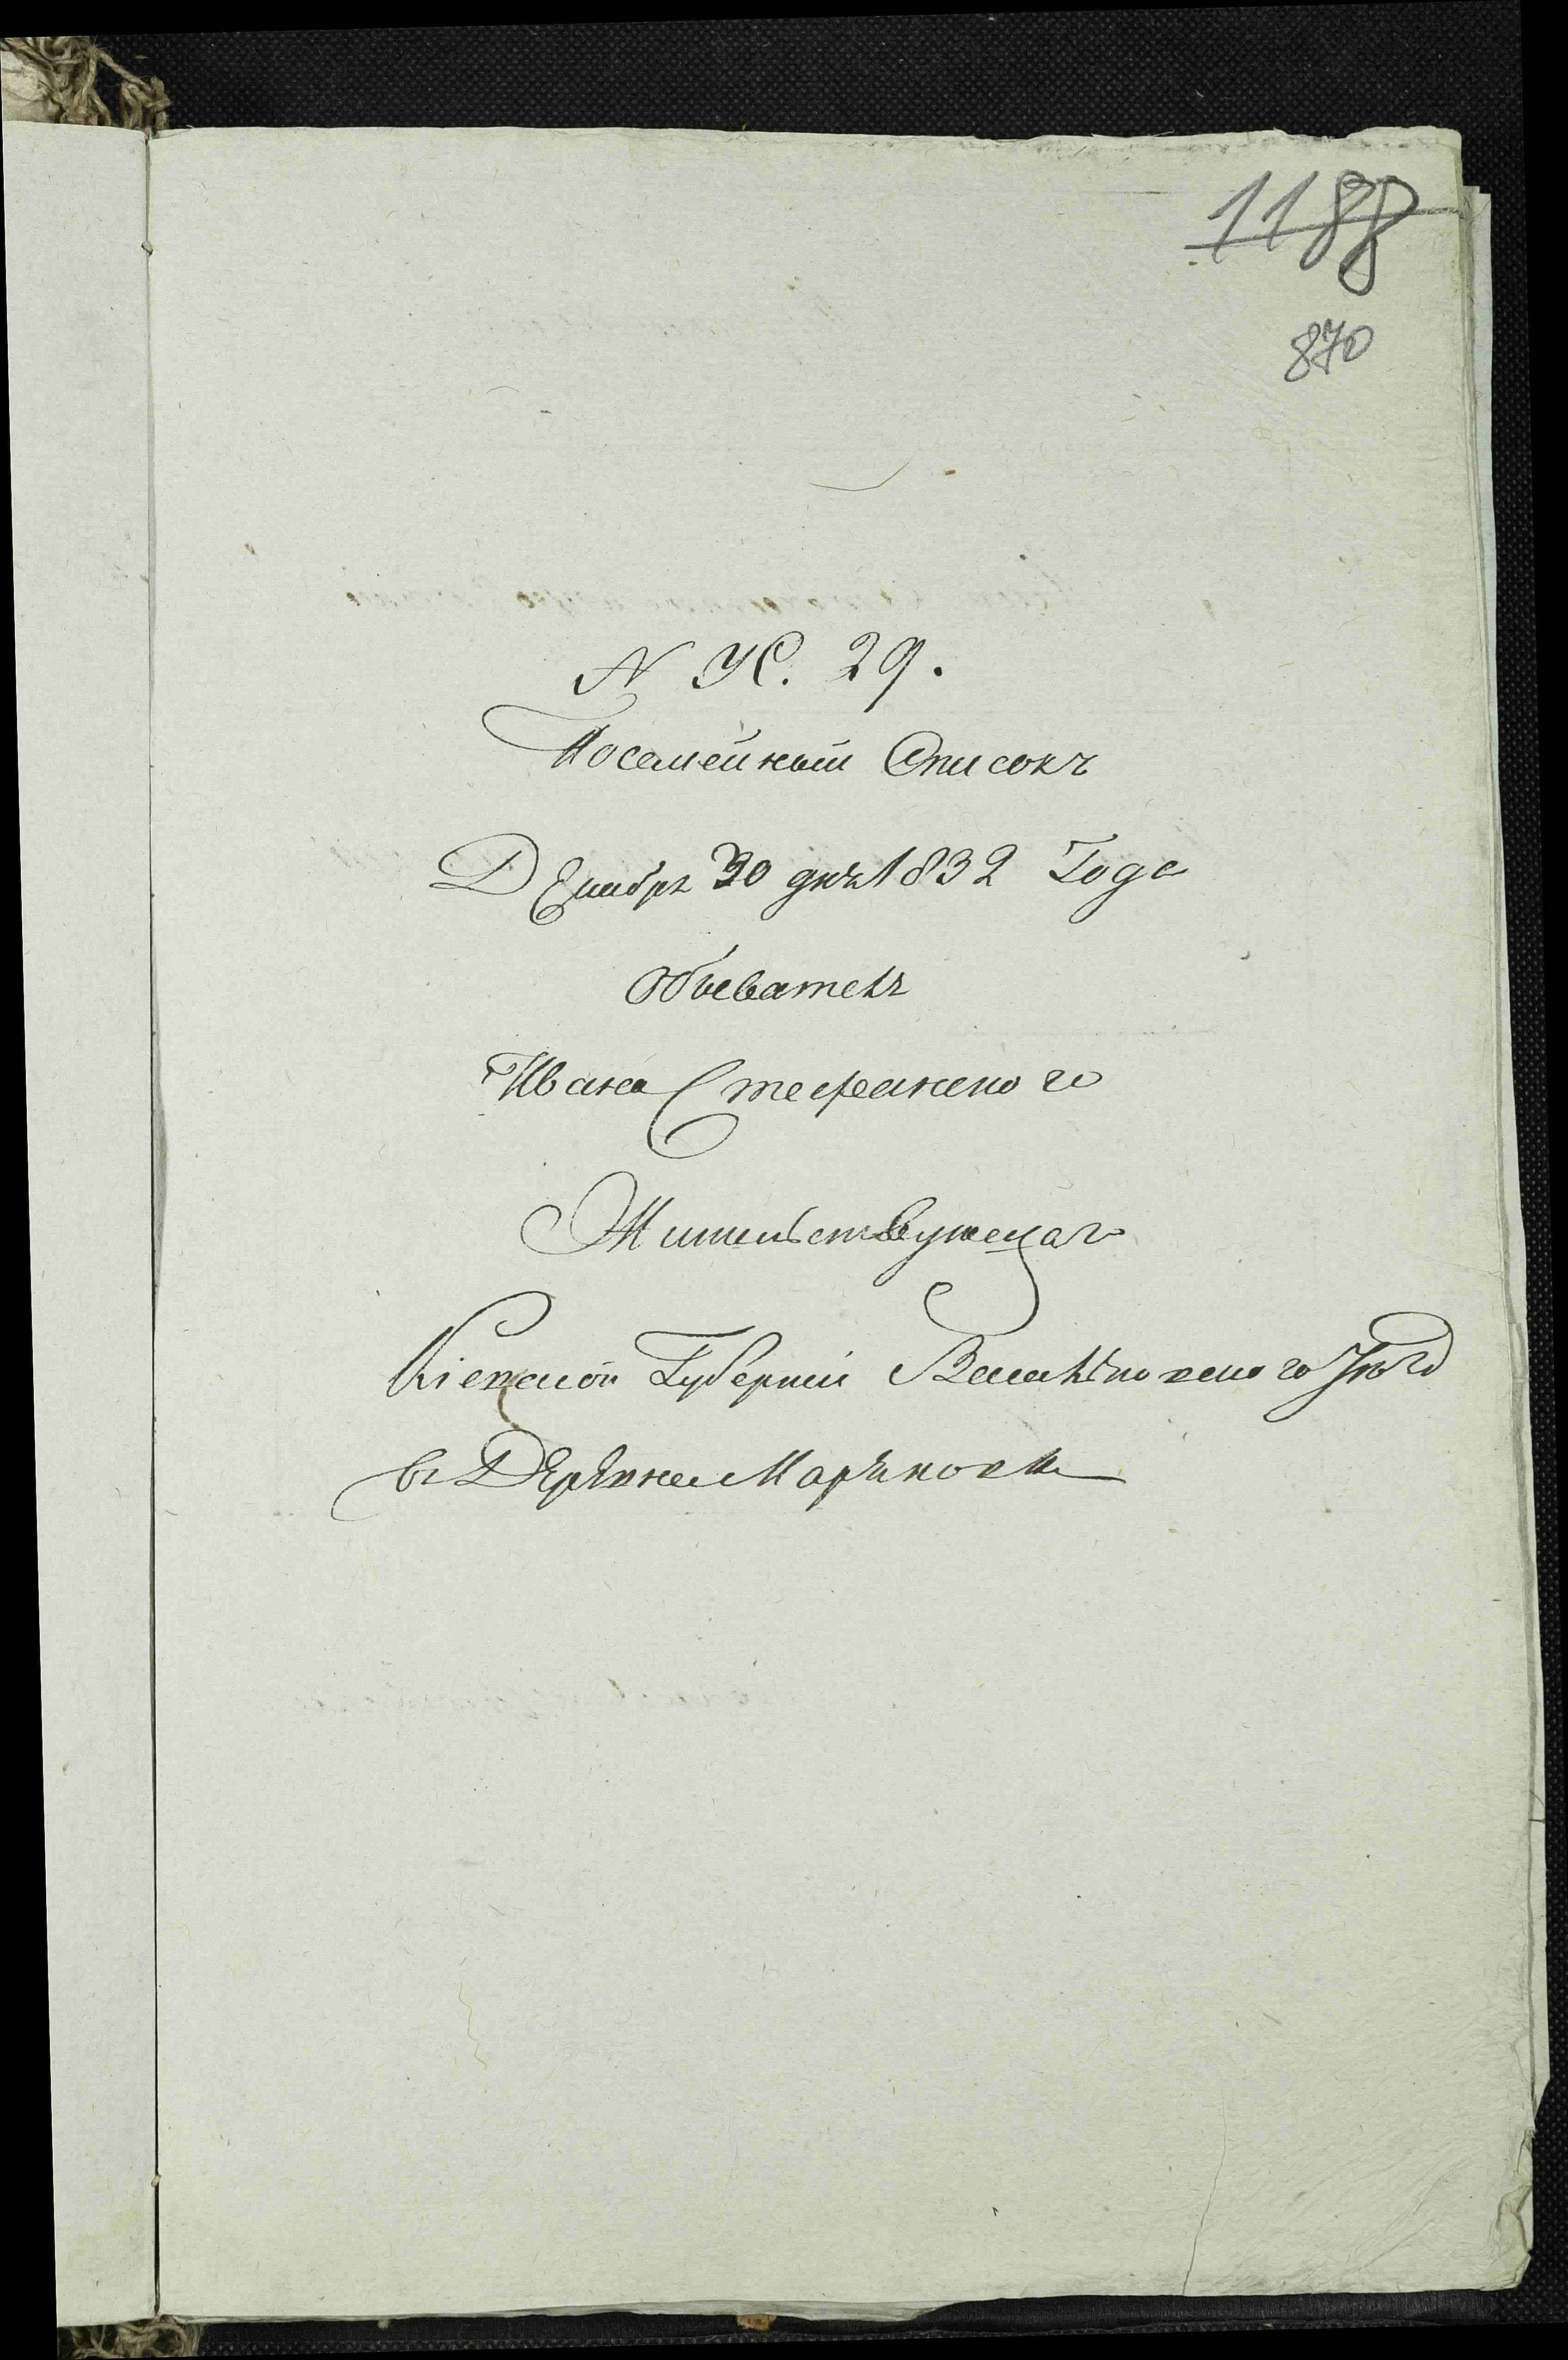 1188
870
N УС. 29.
Посемейный Список
Декабря 30 дня 1832 Года
Обывателя
Ивана Стефанского
Жительствующаго
Кіевской Губерніи Васильковского
въ Деревне Марьяновки